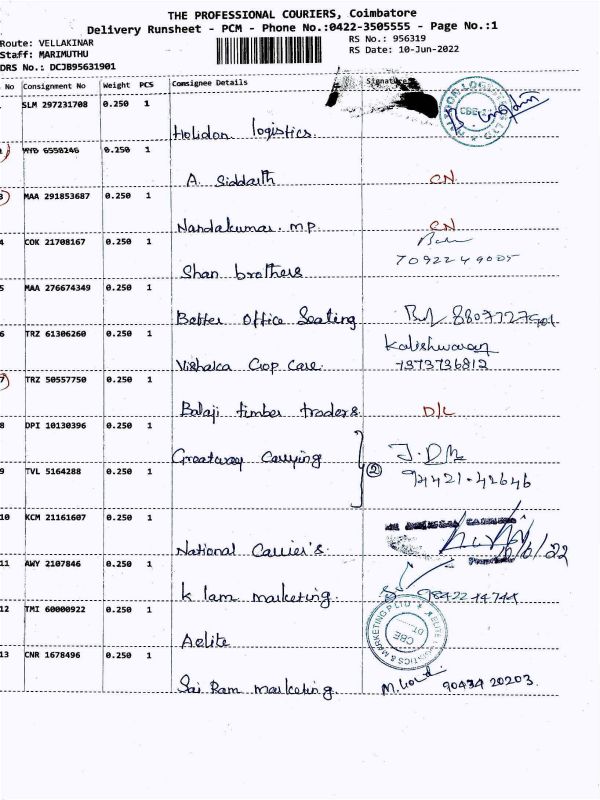 THE PROFESSIONAL COURIERS, Coimbatore
Delivery Runsheet - PCM - Phone No.:0422-3505555 - Page No.:1
Route: VELLAKINAR
RS No.: 956319
Staff: MARIMUTHU
RS Date: 10-Jun-2022
DRS No.: DCJB95631901
No Consignment No Weight PCS Consignee Details Signature
SLM 297231708 0.250 1
Holidon logistics.
6550246 0.250 1
A. Siddarth CN
3 MAA 291853687 0.250 1
Nandakumar. M.P CN
4 COK 21708167 0.250 1
Shan brothers
5 MAA 276674349 0.250 1
Better Office Seating
6 TRZ 61306260 0.250 1
Kalishwaran
Vishalca Crop Care. 7373736812
7 TRZ 50557750 0.250 1
Balaji timber traders. D/L
8 DPI 10130396 0.250 1
Greatway Carrying
9 TVL 5164288 0.250 1
2
94421-42646
10 KCM 21161607 0.250 1
National Carrier's 10/6/22
11 AWY 2107846 0.250 1
K lam marketing. 9842244744
12 TMI 60000922 0.250 1
Aelite
13 CNR 1678496 0.250 1
Sai Ram marketing. 90434 20203.